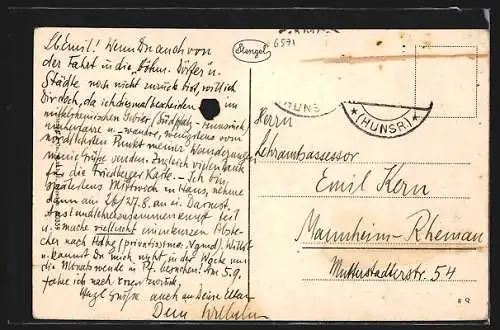 L. Emil! Wenn Du auch von
der Fahrt in die "Böhm. Dörfer" u.
Städte noch nicht zurück bist, will ich
Dir doch, da ich diesmal bescheiden im
mittelrheinischen Gebiet (Südpfalz - Hunsrück)
umherfahre u. - wandre, wenigstens vom
nördlichsten Punkt meiner Wanderung
meine Grüße senden. Zugleich vielen Dank
für die Friedberger Karte. - Ich bin
spätestens Mittwoch in Haus, nehme
dann am 26/27.8. an in Darmst.
teil
u. mache vielleicht einen kurzen Abste-
cher nach Hdbg (privatissimo, Vgmd). Willst
u. kannst Du mich nicht in der Woche um
die Monatswende in Pf. besuchen! Am 5.9.
fahre ich nach zurück.
Herzl. Grüsse auch an Deine Eltern
Dein Wilhelm
Stengel
6571
HUNS
(HUNSR.)
Herrn
Lehramtsassessor
Emil Kern
Mannheim-Rheinau
Mutterstadterstr. 54